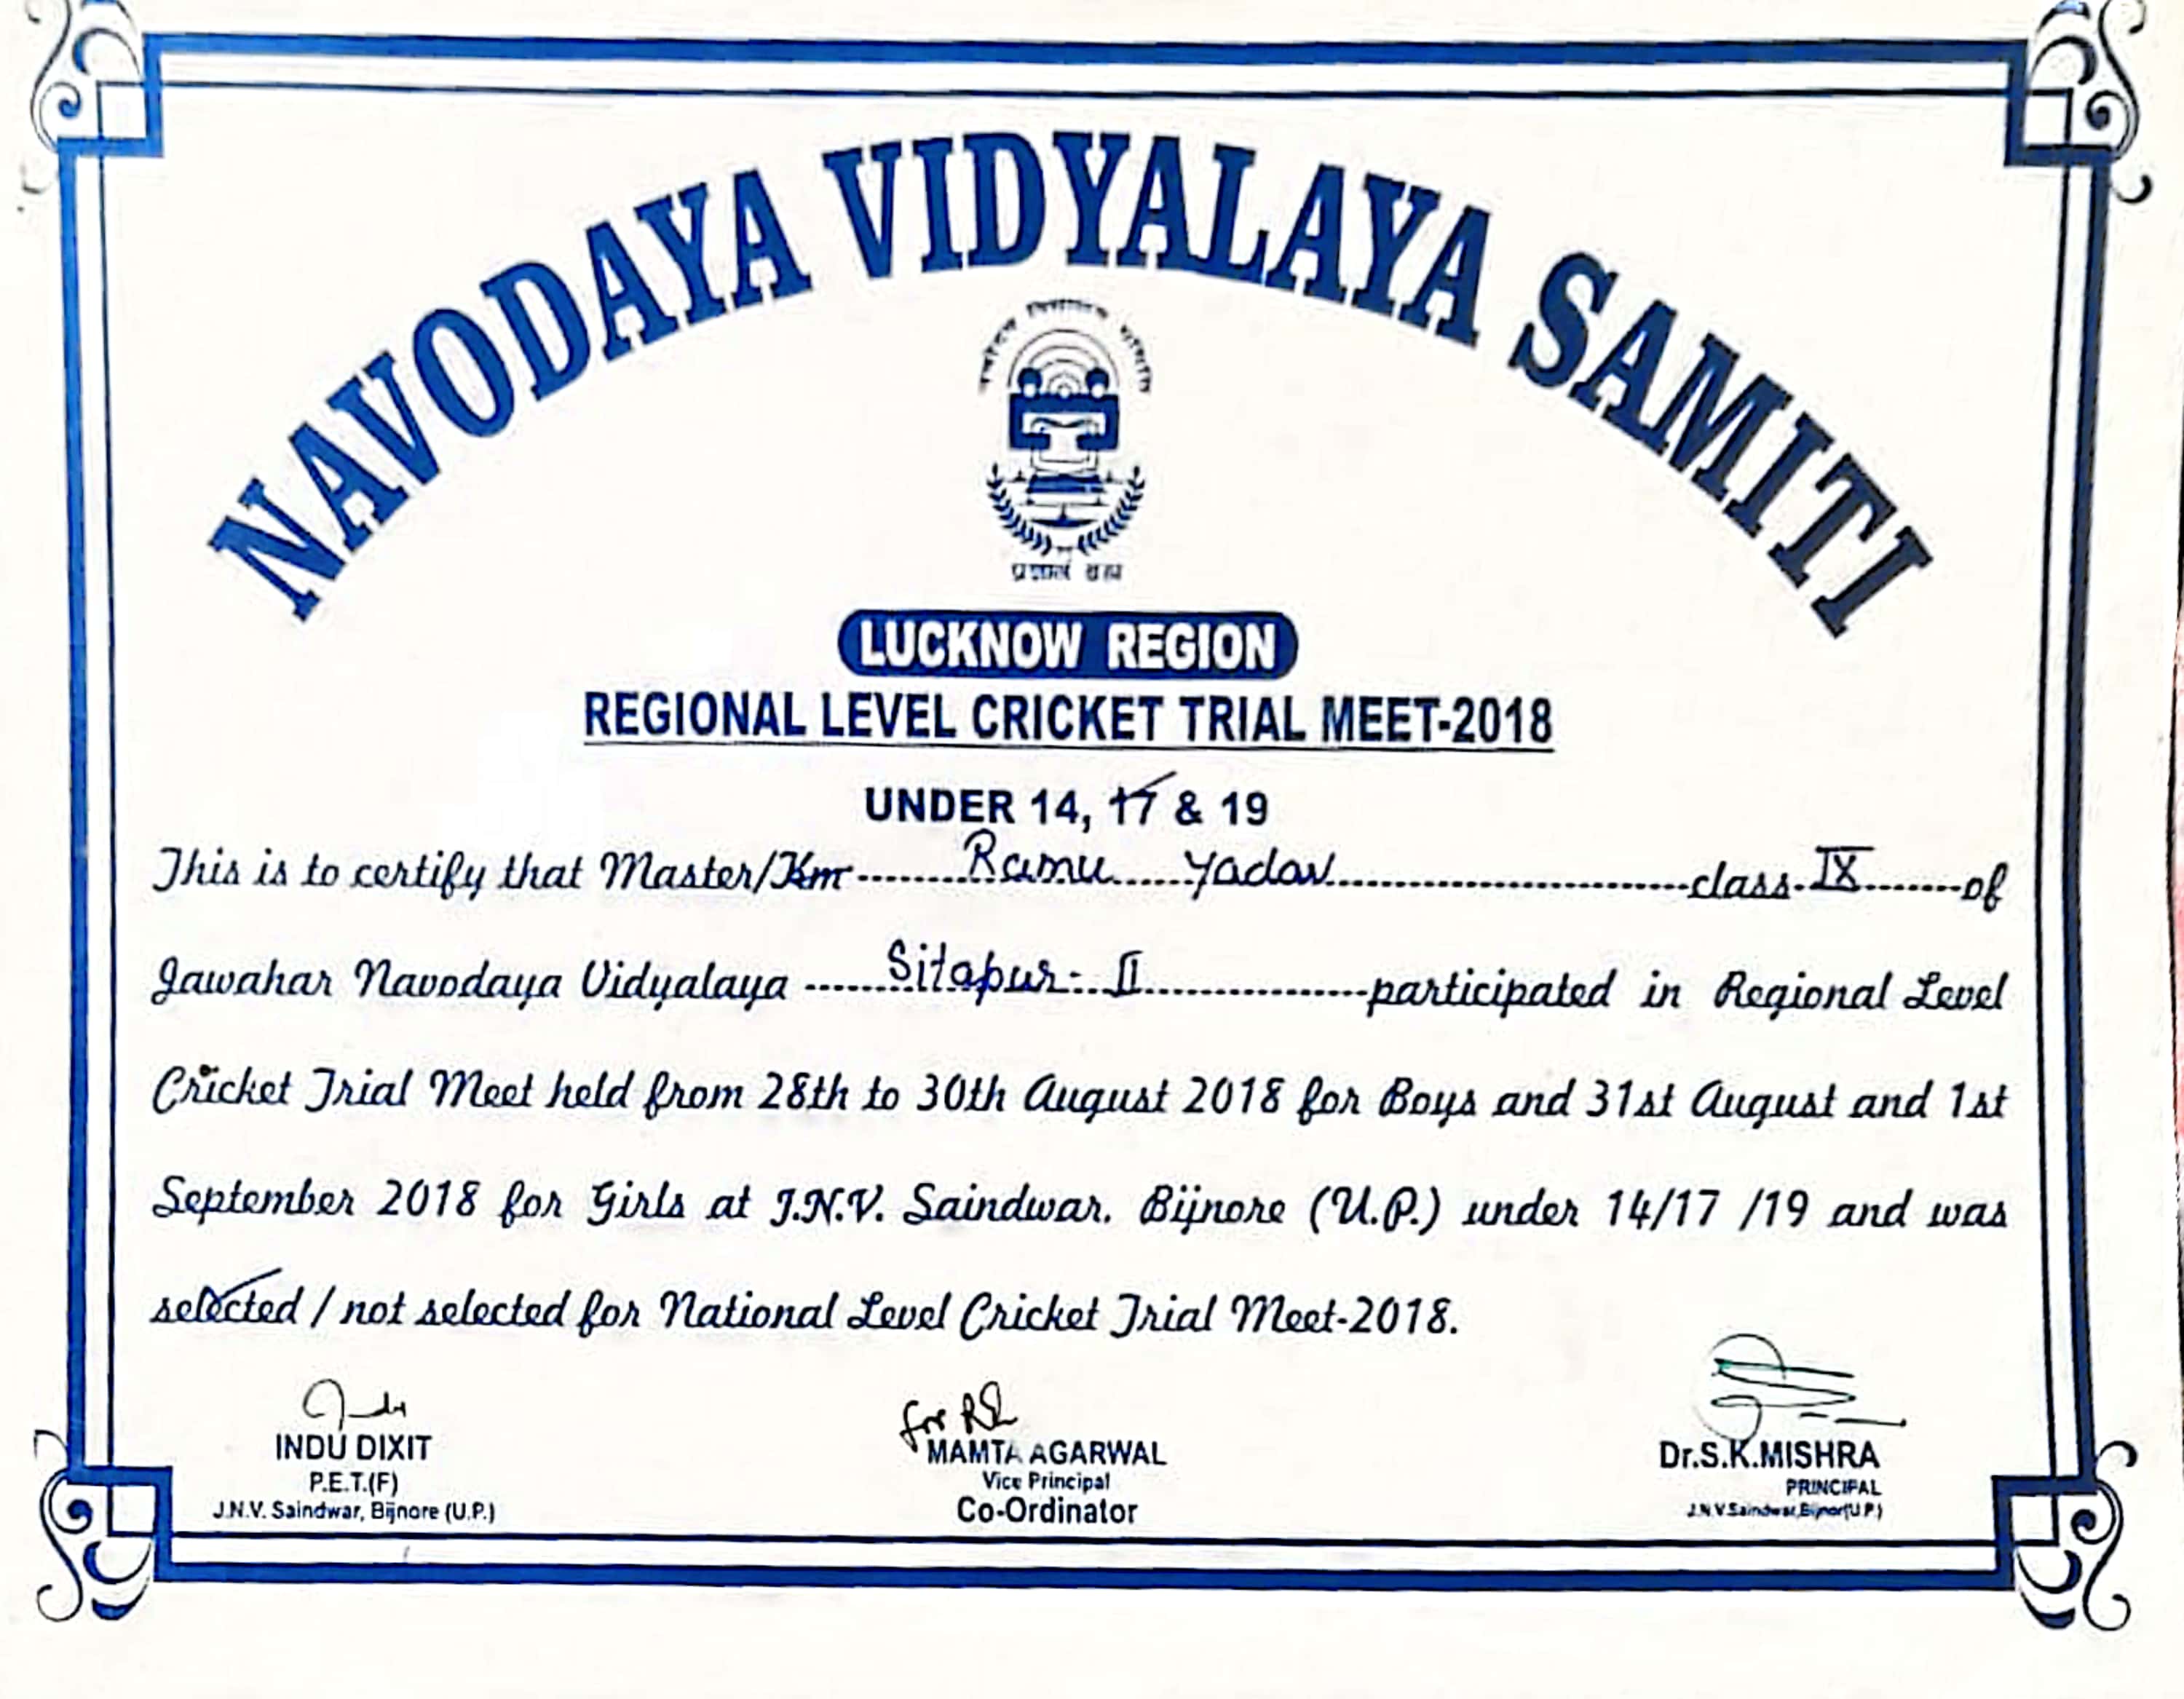 NAVODAYA VIDYALAYA SAMITI
नवोदय विद्यालय समिति
LUCKNOW REGION
REGIONAL LEVEL CRICKET TRIAL MEET-2018
UNDER 14, 17 & 19
This is to certify that Master/Km Ramu Yadav class IX of
Jawahar Navodaya Vidyalaya Sitapur- II participated in Regional Level
Cricket Trial Meet held from 28th to 30th August 2018 for Boys and 31st August and 1st
September 2018 for Girls at J.N.V. Saindwar. Bijnore (U.P.) under 14/17 /19 and was
selected / not selected for National Level Cricket Trial Meet-2018.
Indu for
INDU DIXIT MAMTA AGARWAL Dr.S.K.MISHRA
P.E.T.(F) Vice Principal PRINCIPAL
J.N.V. Saindwar, Bijnore (U.P.) Co-Ordinator J.N.V.Saindwar,Bijnor(U.P.)